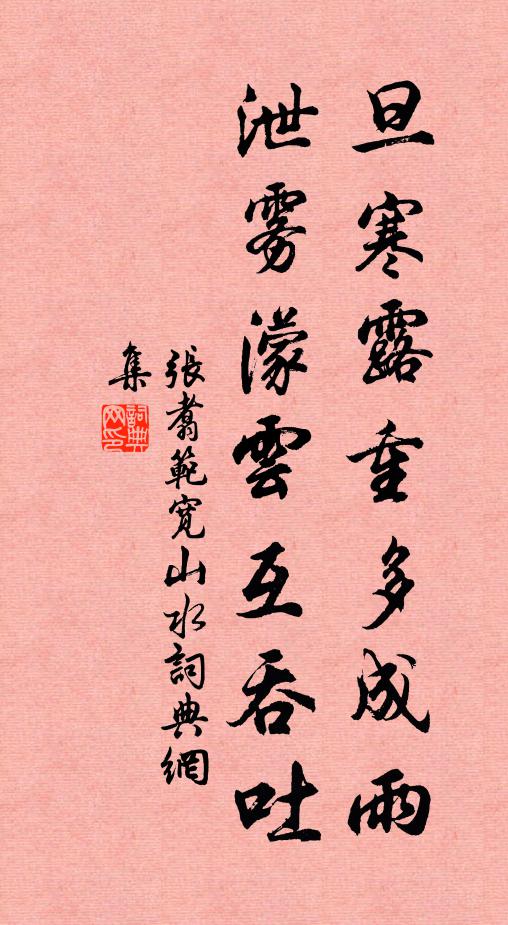 旦寒露重多成雨
泄雾濛雲互吞吐
張翥範寬山水詞典網
集
詞典
网印